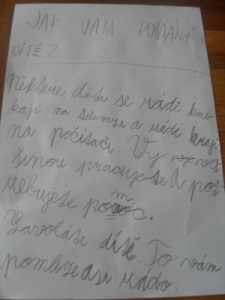 JAK VÁM POMÁHÁ
DÍTĚ?
Některé děti se rádi kou
kají na televizi a rádi hrají
na počítači. Vy
šinou pracujete a pot
řebujete pomoc.
Zavoláte dítě. To vám
pomůže asi rádo.